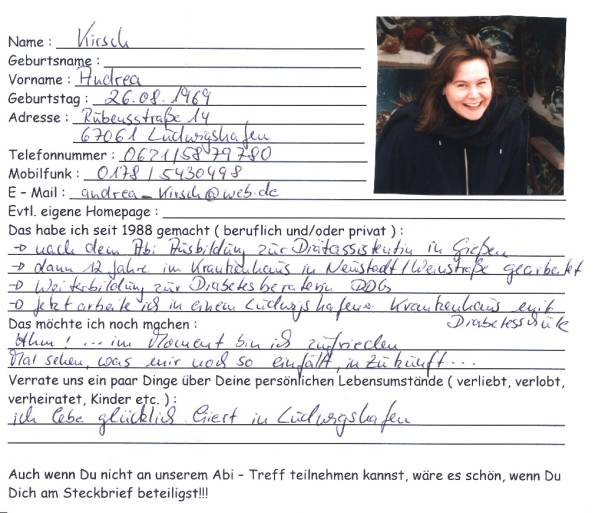 Name : Kirsch
Geburtsname :
Vorname : Andrea
Geburtstag : 26.08.1969
Adresse : Rubensstraße 14
67061 Ludwigshafen
Telefonnummer : 0621/5879780
Mobilfunk : 0178/5430498
E - Mail : andrea_kirsch@web.de
Evtl. eigene Homepage :
Das habe ich seit 1988 gemacht ( beruflich und/oder privat ) :
→ nach dem Abi Ausbildung zur Diätassistentin in Gießen
→ dann 12 Jahre im Krankenhaus in Neustadt/Weinstraße gearbeitet
→ Weiterbildung zur Diabetesberaterin DDG
→ Jetzt arbeite ich in einem Ludwigshafener Krankenhaus mit
Diabetesschule
Das möchte ich noch machen :
Ähm! ... im Moment bin ich zufrieden
Mal sehen, was mir noch so einfällt, in Zukunft...
Verrate uns ein paar Dinge über Deine persönlichen Lebensumstände ( verliebt, verlobt,
verheiratet, Kinder etc. ) :
ich lebe glücklich liiert in Ludwigshafen
Auch wenn Du nicht an unserem Abi – Treff teilnehmen kannst, wäre es schön, wenn Du
Dich am Steckbrief beteiligst!!!